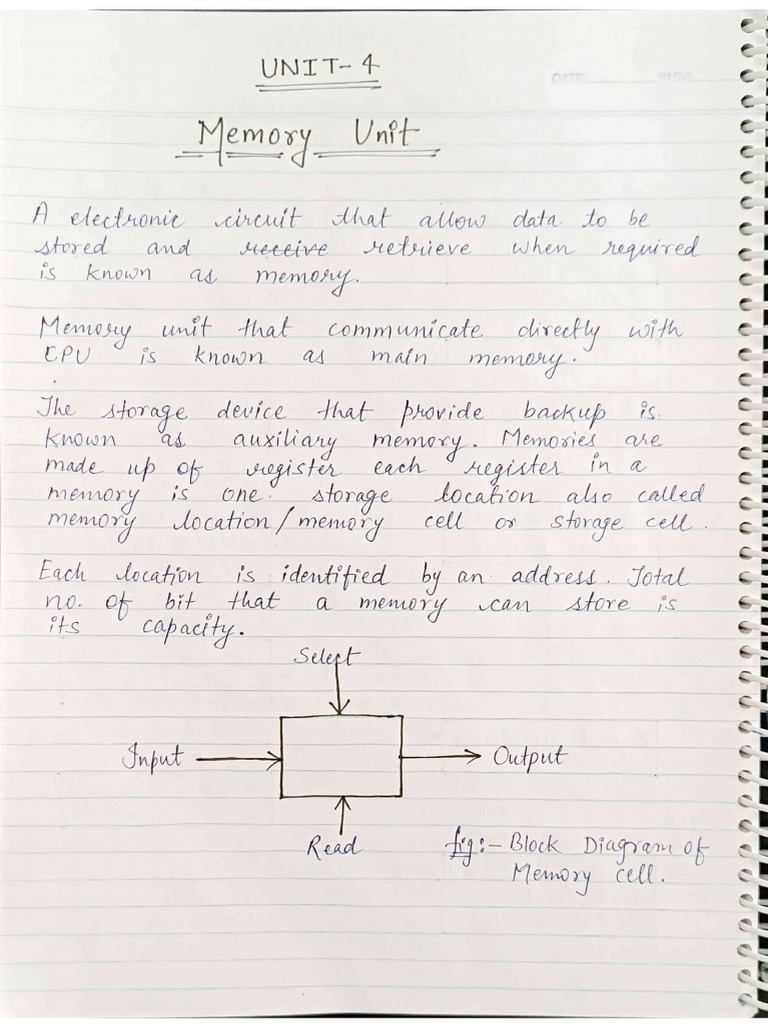 UNIT-4
DATE: PAGE:
Memory Unit
A electronic circuit that allow data to be
stored and receive retrieve when required
is known as memory.
Memory unit that communicate directly with
CPU is known as main memory.
The storage device that provide backup is
known as auxiliary memory. Memories are
made up of register each register in a
memory is one storage location also called
memory location/memory cell or storage cell.
Each location is identified by an address. Total
no. of bit that a memory can store is
its capacity.
Select
Input
Output
Read
fig:- Block Diagram of
Memory cell.